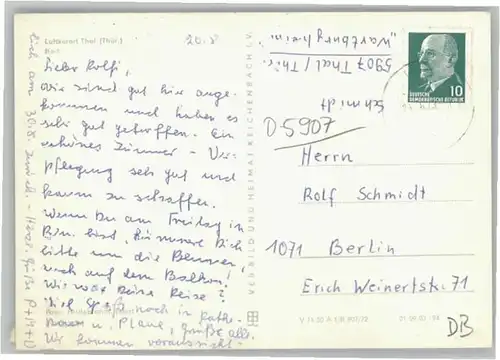 Luftkurort Thal (Thür.)
20.8
Lieber Rolfi,
wir sind gut hier ange-
kommen und haben es
sehr gut getroffen. Ein
schönes Zimmer - Ver-
pflegung sehr gut und
kaum zu schaffen.
Wenn Du am Freitag in
Bln. bist, kümmere Dich
bitte um die Blumen,
auch auf dem Balkon!
Wie war Deine Reise?
Viel Spaß noch in
u. Plane, grüße alle.
Wir kommen voraussicht-
lich am 30.8. zurück. - Herzl. Grüße P+M+D
VERBILDUNG HEIMAT REICHENBACH I. V.
Schmidt
5907 Thal / Thür.
"Wartburgheim"
D 5907
10
DEUTSCHE
DEMOKRATISCHE REPUBLIK
Herrn
Rolf Schmidt
1071 Berlin
Erich Weinertstr. 71
DB